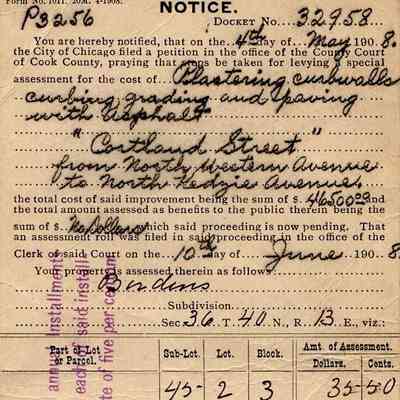 Form No. 1011. 20M. 4-1908.
NOTICE.
P3256
DOCKET NO. 32958.
You are hereby notified, that on the 4th day of May 1908.
the City of Chicago filed a petition in the office of the County Court
of Cook County, praying that steps be taken for levying a special
assessment for the cost of Plastering curbwalls
curbing grading and paving
with asphalt
"Cortland Street"
from North Western Avenue
to North Kedzie Avenue,
the total cost of said improvement being the sum of $ 46500.00 and
the total amount assessed as benefits to the public therein being the
sum of $ No Dollars which said proceeding is now pending. That
an assessment roll was filed in said proceeding in the office of the
Clerk of said Court on the 10th day of June 1908.
Your property is assessed therein as follows:
Subdivision
Sec 36 T. 40 N., R. 13 E., viz.:
annual installment
each of said install
ate of five per cent
Part of Lot or Parcel. Sub-Lot. Lot. Block. Amt. of Assessment.
Dollars. Cents.
45- 2 3 35-50